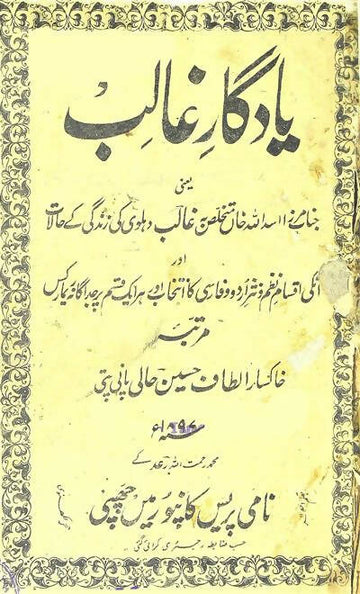 یادگارِ غالب
یعنی
جناب مرزا اسد اللہ خاں متخلص بہ غالب دہلوی کی زندگی کے حالات
اور
انکی اقسام نظم و نثر اردو و فارسی کا انتخاب اور ہر ایک قسم پر جداگانہ ریمارکس
مرتبہ
خاکسار الطاف حسین حالی پانی پتی
سنہ ۱۸۹۷ء
محمد رحمت اللہ رعد کے
نامی پریس کانپور میں چھپی
حسب ضابطہ رجسٹری کرائی گئی